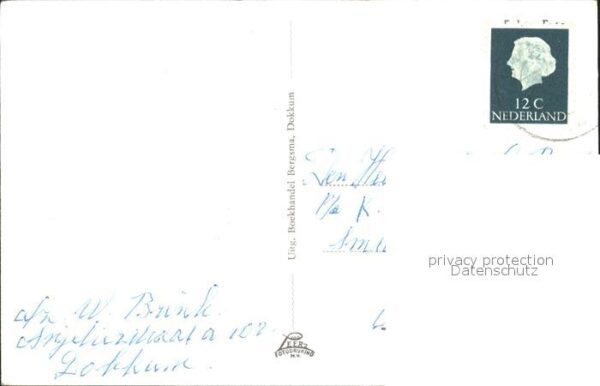 12 C
NEDERLAND
Uitg. Boekhandel Bergsma, Dokkum
Den He
p/a K.
Sm
privacy protection
Datenschutz
afz. W. Brink.
Anjelierstraat 102
Dokkum.
LEER's
FOTODRUKIND
N.V.